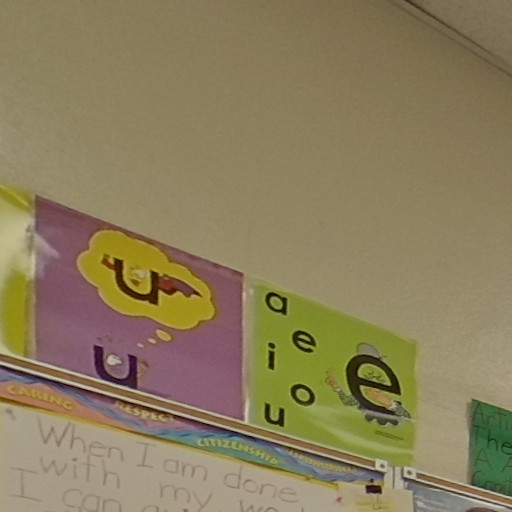 u
u
a
e
i
o
u
e
CARING
RESPECT
CITIZENSHIP
When I am done
with my
I can